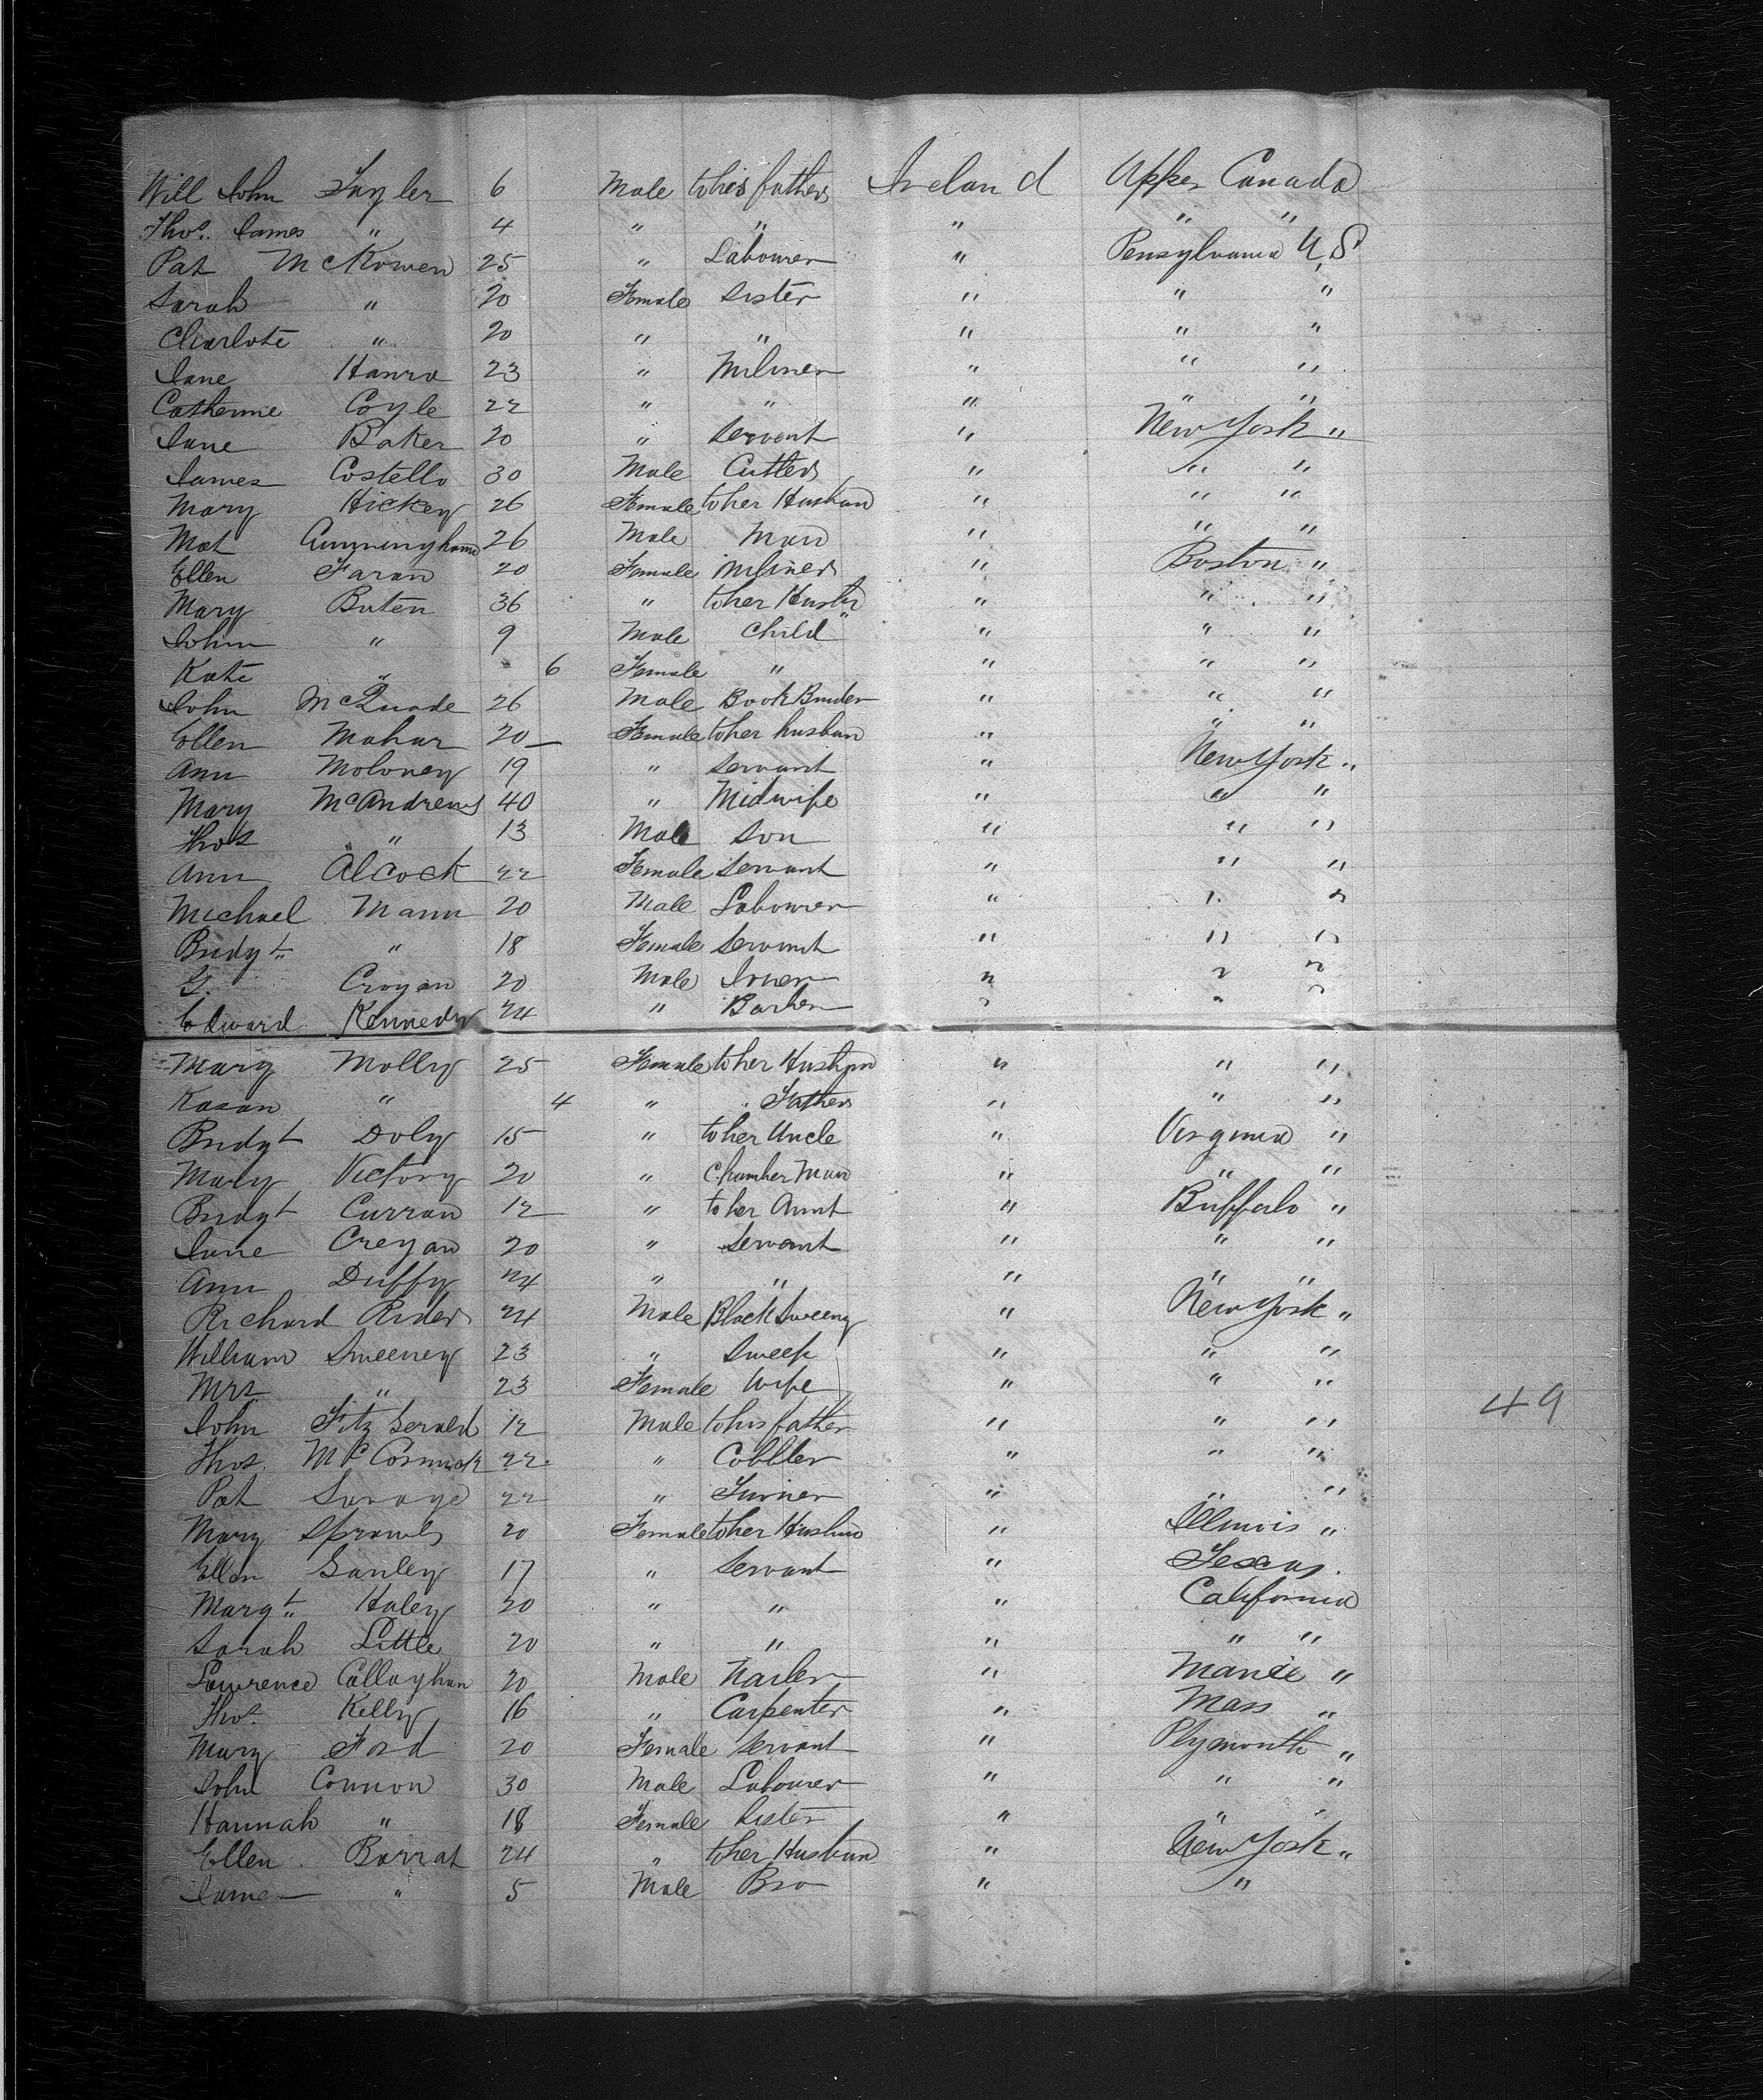 Will John Tayler 6 Male to his father Ireland Upper Canada
Thos. James " 4 " " " " "
Pat McKowen 25 " Labourer " Pensylvania U,S
Sarah " 20 Female Sister " " "
Charlote " 20 " " " " "
Jane Hanra 23 " Miliner " " "
Catherine Coyle 22 " " " " "
Jane Baker 20 " Servant " New York "
James Costello 30 Male Cutler " " "
Mary Hickey 26 Female to her Husban " " "
Mat Cunningham 26 Male Man " " "
Ellen Faran 20 Female Miliner " Boston "
Mary Buten 36 " to her " " "
John " 9 Male Child " " "
Kate " 6 Female " " " "
John McQuade 26 Male Book Binder " " "
Ellen Mahar 20 Female to her husban " " "
Ann Moloney 19 " Servant " New York "
Mary McAndrews 40 " Midwife " " "
Thos " 13 Male Son " " "
Ann Alcock 22 Female Servant " " "
Michael Mann 20 Male Labourer " " "
Bridgt " 18 Female Servant " " "
G. Crogan 20 Male " " "
Edward Kennedy 24 " " " "
Mary Molly 25 Female to her " " "
" 4 " " Father " " "
Bridgt Doly 15 " to her Uncle " Virginia "
Mary Victory 20 " Chamber " " "
Bridgt Curran 12 " to her Aunt " Buffalo "
Jane Creyan 20 " Servant " " "
Ann Duffy 24 " " " " "
Richard Rider 24 Male Black " New York "
William Sweeney 23 " Sweep " " "
Mrs " 23 Female Wife " " "
John Fitz Gerald 12 Male to his father " " "
Thos. McCormick 22 " Cobbler " " "
Pat Savage 22 " Turner " " "
Mary 20 Female to her " Illinois "
Ellen Ganley 17 " Servant " Texas.
Margt Haley 20 " " " California
Sarah Little 20 " " " " "
Lawrence Callaghan 20 Male Nailer " "
Thos. Kelly 16 " Carpenter " Mass "
Mary Ford 20 Female Servant " Plymouth "
John Connon 30 Male Labourer " " "
Hannah " 18 Female Sister " " "
Ellen Barrat 24 " to her Husban " New York "
James " 5 Male Bro " "
49